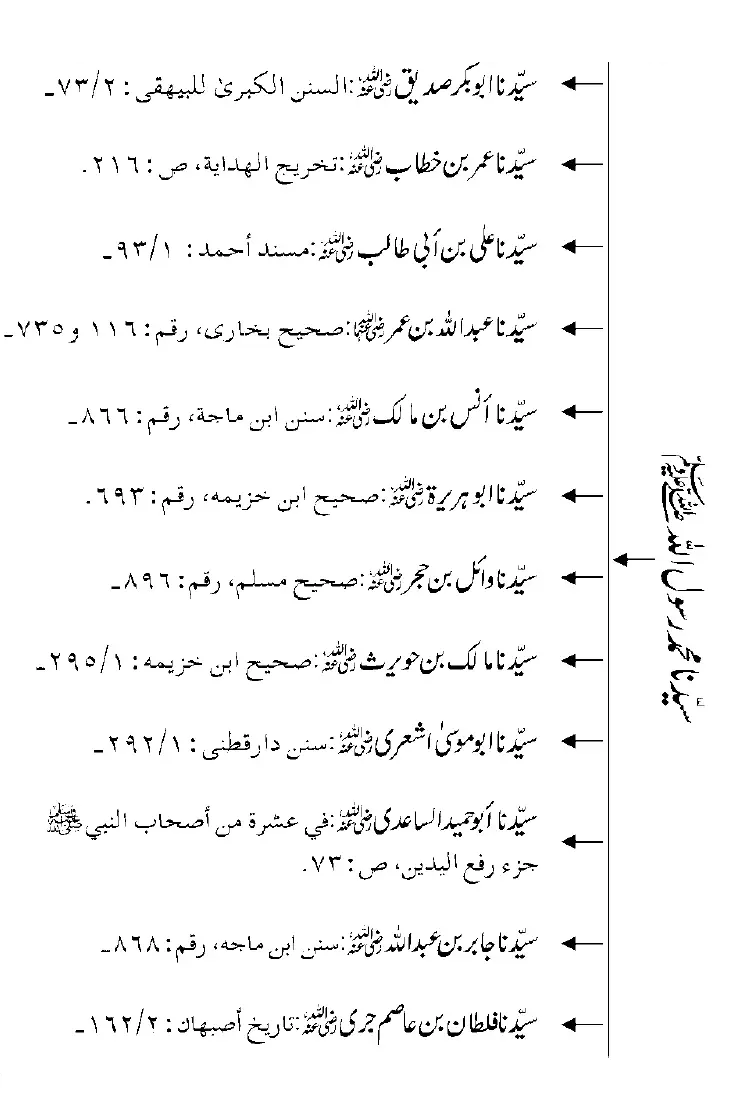 سیّدنا محمد رسول اللہ ﷺ
سیّدنا ابوبکر صدیق رضی اللہ عنہ: السنن الکبریٰ للبیهقی: ۷۳/۲۔
سیّدنا عمر بن خطاب رضی اللہ عنہ: تخریج الهدایة، ص: ۲۱٦.
سیّدنا علی بن أبی طالب رضی اللہ عنہ: مسند أحمد: ۹۳/۱۔
سیّدنا عبداللہ بن عمر رضی اللہ عنہما: صحیح بخاری، رقم: ۱۱٦ و ۷۳۵۔
سیّدنا أنس بن مالک رضی اللہ عنہ: سنن ابن ماجة، رقم: ۸٦٦۔
سیّدنا ابو ہریرۃ رضی اللہ عنہ: صحیح ابن خزیمه، رقم: ٦۹۳.
سیّدنا وائل بن حجر رضی اللہ عنہ: صحیح مسلم، رقم: ۸۹٦۔
سیّدنا مالک بن حویرث رضی اللہ عنہ: صحیح ابن خزیمه: ۲۹۵/۱۔
سیّدنا ابوموسیٰ اشعری رضی اللہ عنہ: سنن دارقطنی: ۲۹۲/۱۔
سیّدنا أبوحمید الساعدی رضی اللہ عنہ: في عشرة من أصحاب النبي ﷺ
جزء رفع الیدین، ص: ۷۳.
سیّدنا جابر بن عبداللہ رضی اللہ عنہ: سنن ابن ماجه، رقم: ۸٦۸۔
سیّدنا فلطان بن عاصم جری رضی اللہ عنہ: تاریخ أصبهان: ۱٦۲/۲۔